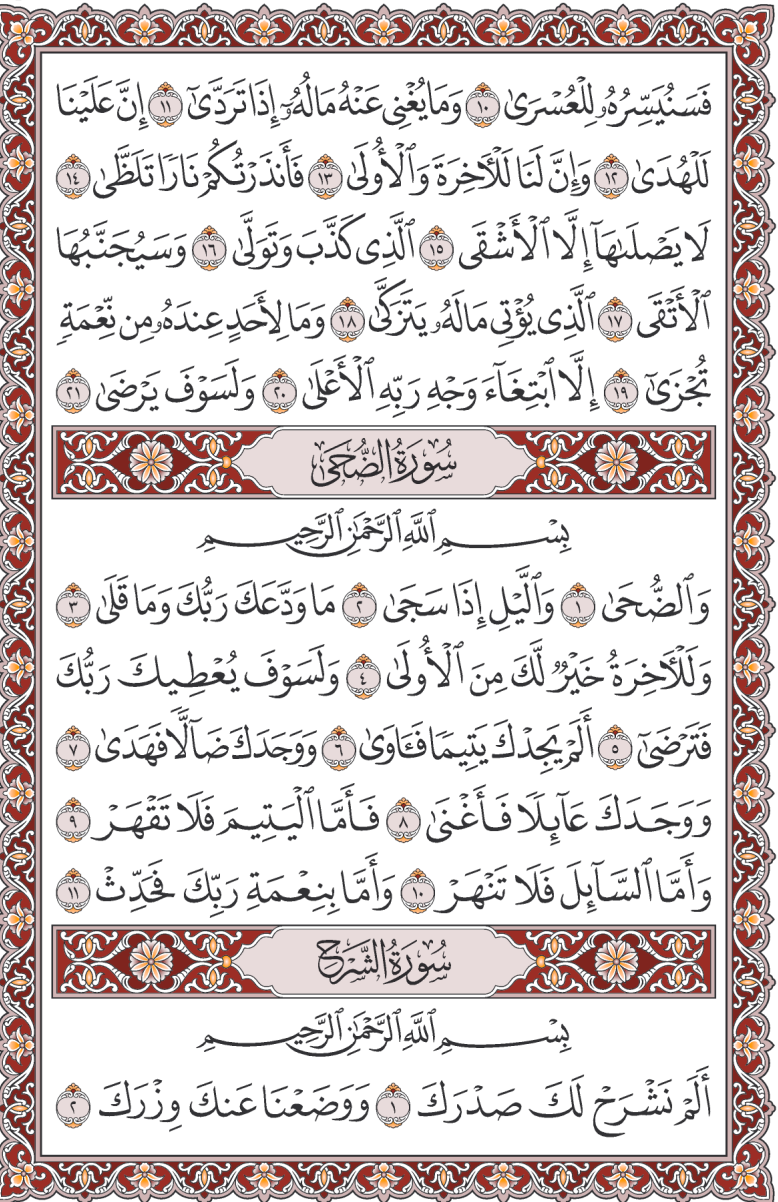 فَسَنُيَسِّرُهُۥ لِلْعُسْرَىٰ ١٠ وَمَا يُغْنِى عَنْهُ مَالُهُۥٓ إِذَا تَرَدَّىٰٓ ١١ إِنَّ عَلَيْنَا
لَلْهُدَىٰ ١٢ وَإِنَّ لَنَا لَلْأَخِرَةَ وَٱلْأُولَىٰ ١٣ فَأَنذَرْتُكُمْ نَارًا تَلَظَّىٰ ١٤
لَا يَصْلَىٰهَآ إِلَّا ٱلْأَشْقَى ١٥ ٱلَّذِى كَذَّبَ وَتَوَلَّىٰ ١٦ وَسَيُجَنَّبُهَا
ٱلْأَتْقَى ١٧ ٱلَّذِى يُؤْتِى مَالَهُۥ يَتَزَكَّىٰ ١٨ وَمَا لِأَحَدٍ عِندَهُۥ مِن نِّعْمَةٍ
تُجْزَىٰٓ ١٩ إِلَّا ٱبْتِغَآءَ وَجْهِ رَبِّهِ ٱلْأَعْلَىٰ ٢٠ وَلَسَوْفَ يَرْضَىٰ ٢١
سُورَةُ الضُّحَىٰ
بِسْمِ ٱللَّهِ ٱلرَّحْمَٰنِ ٱلرَّحِيمِ
وَٱلضُّحَىٰ ١ وَٱلَّيْلِ إِذَا سَجَىٰ ٢ مَا وَدَّعَكَ رَبُّكَ وَمَا قَلَىٰ ٣
وَلَلْأَخِرَةُ خَيْرٌ لَّكَ مِنَ ٱلْأُولَىٰ ٤ وَلَسَوْفَ يُعْطِيكَ رَبُّكَ
فَتَرْضَىٰٓ ٥ أَلَمْ يَجِدْكَ يَتِيمًا فَـَٔاوَىٰ ٦ وَوَجَدَكَ ضَآلًّا فَهَدَىٰ ٧
وَوَجَدَكَ عَآئِلًا فَأَغْنَىٰ ٨ فَأَمَّا ٱلْيَتِيمَ فَلَا تَقْهَرْ ٩
وَأَمَّا ٱلسَّآئِلَ فَلَا تَنْهَرْ ١٠ وَأَمَّا بِنِعْمَةِ رَبِّكَ فَحَدِّثْ ١١
سُورَةُ الشَّرْحِ
بِسْمِ ٱللَّهِ ٱلرَّحْمَٰنِ ٱلرَّحِيمِ
أَلَمْ نَشْرَحْ لَكَ صَدْرَكَ ١ وَوَضَعْنَا عَنكَ وِزْرَكَ ٢